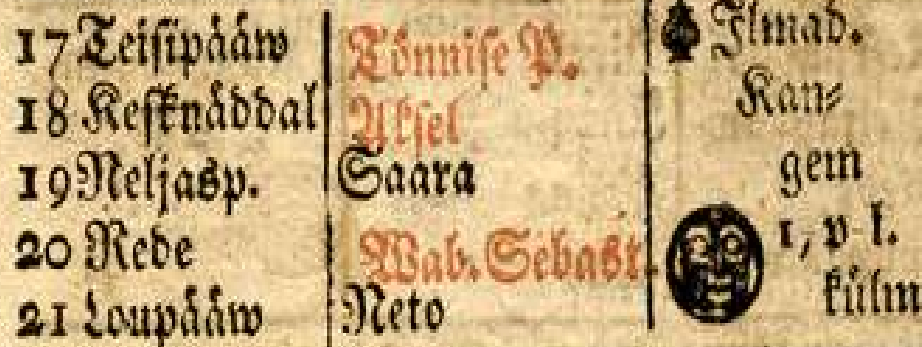 17 Teisipääw Tönnise P. Ilmad.
18 Kesknäddal Aksel Kan⸗
19 Neljasp. Saara gem
20 Rede Wab. Sebast 1, p. l.
21 Loupääw Neto külm